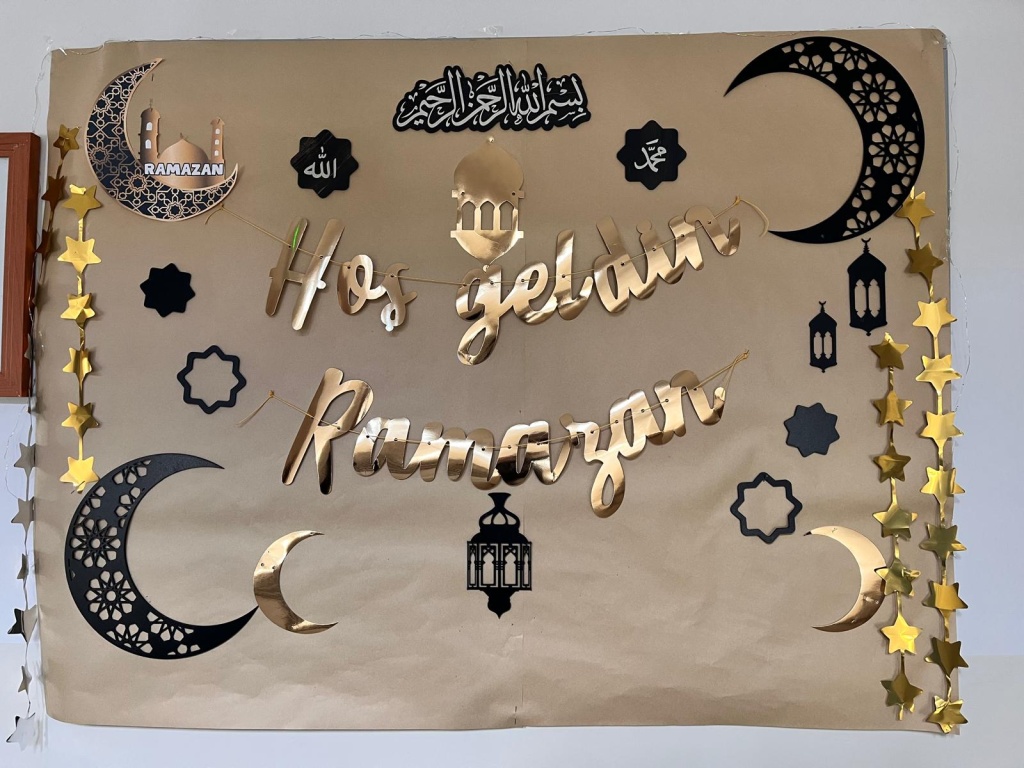 بسم الله الرحمن الرحيم
RAMAZAN
الله
محمد
Hoş geldin
Ramazan